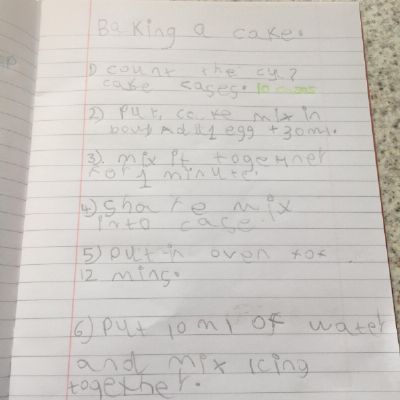 Baking a cake.
1) count the cup
cake cases. 10 cases
2) Put cake mix in
bowl Add 1 egg + 30ml.
3). mix it together
for 1 minute.
4) Share mix
into case.
5) put in oven for
12 mins.
6) Put 10 ml of water
and mix icing
together.